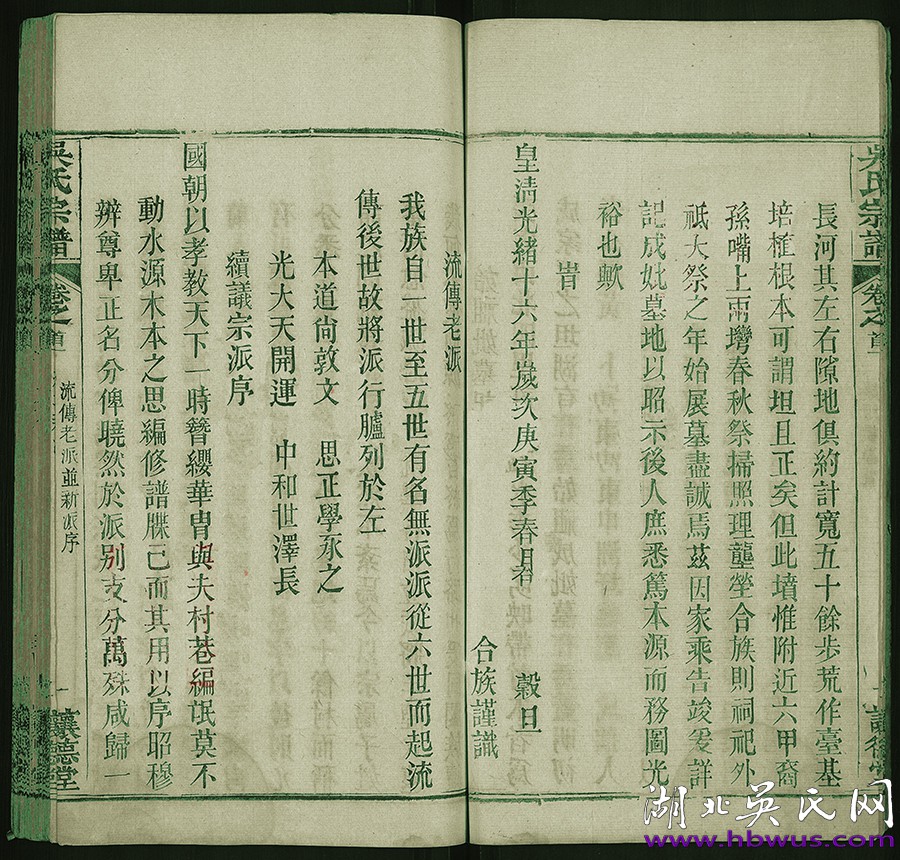 吳氏宗譜
卷之首
長河其左右隙地俱約計寬五十餘步荒作臺基
培植根本可謂坦且正矣但此墳惟附近六甲裔
孫嘴上兩塆春秋祭掃照理壟塋合族則祠祀外
祇大祭之年始展墓盡誠焉茲因家乘告竣爰詳
記成妣墓地以昭示後人庶悉篤本源而務圖光
裕也歟
皇清光緒十六年歲次庚寅季春月 穀旦
合族謹識
流傳老派
我族自一世至五世有名無派派從六世而起流
傳後世故將派行臚列於左
本道尚敦文 思正學永之
光大天開運 中和世澤長
續議宗派序
國朝以孝教天下一時簪纓華冑與夫村巷編氓莫不
動水源木本之思編修譜牒已而其用以序昭穆
辨尊卑正名分俾曉然於派別支分萬殊咸歸一
吳氏宗譜
卷之首
流傳老派並新派序
一
讓德堂
湖北吳氏网
www.hbwus.com